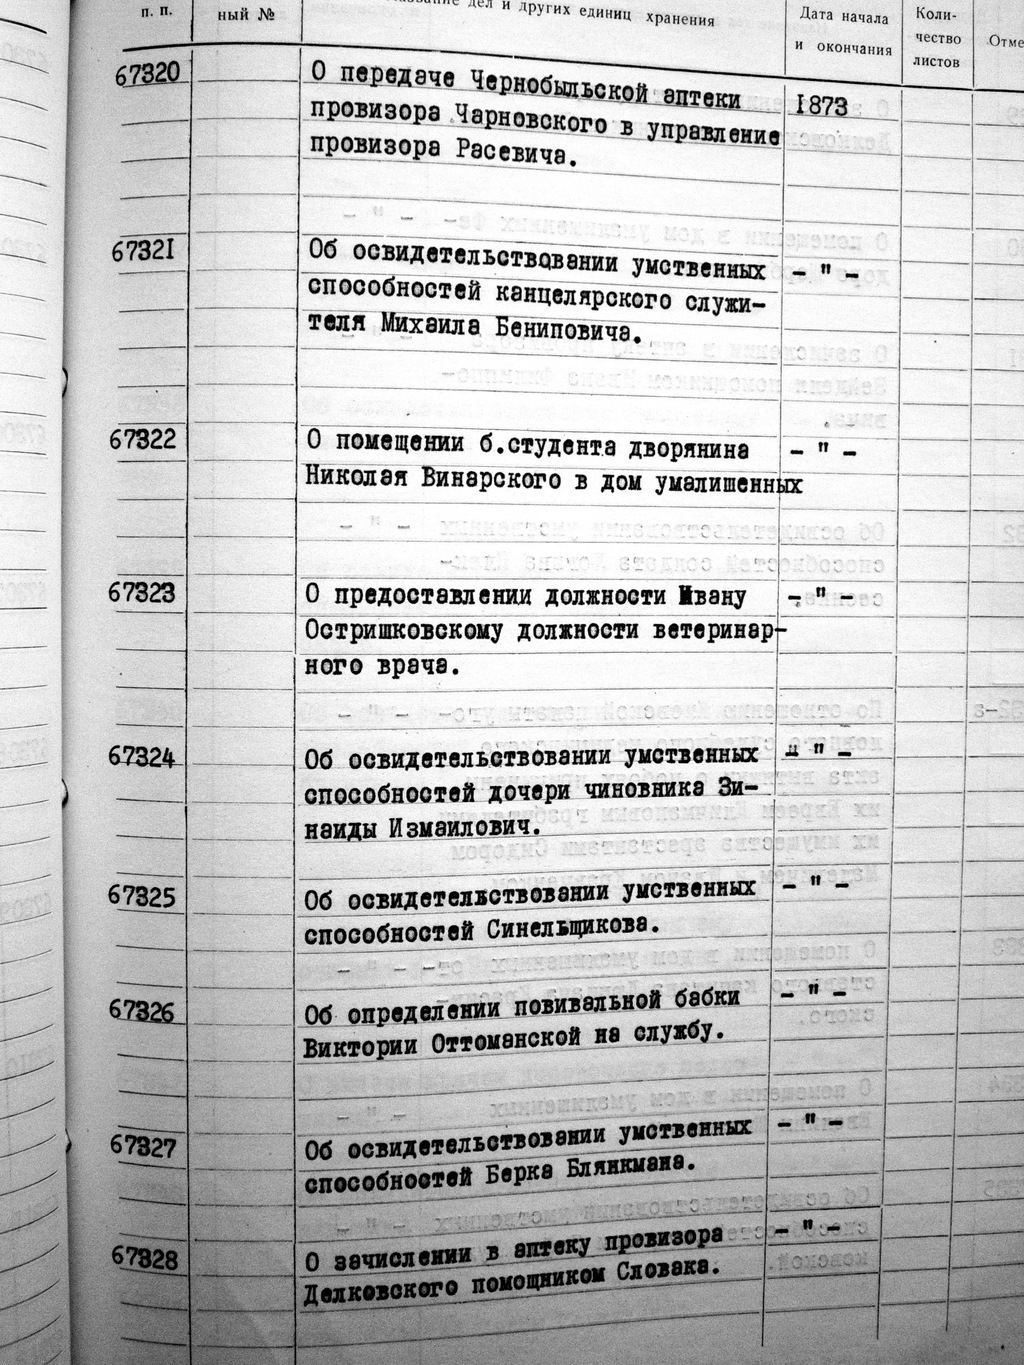 п. п.
ный №
дел и других единиц хранения
Дата начала
и окончания
Коли-
чество
листов
67320
О передаче Чернобыльской аптеки
провизора Чарновского в управление
провизора Расевича.
1873
67321
Об освидетельствовании умственных
способностей канцелярского служи-
теля Михаила Бениповича.
- " -
67322
О помещении б.студента дворянина
Николая Винарского в дом умалишенных
- " -
67323
О предоставлении должности Ивану
Остришковскому должности ветеринар-
ного врача.
- " -
67324
Об освидетельствовании умственных
способностей дочери чиновника Зи-
наиды Измаилович.
- " -
67325
Об освидетельствовании умственных
способностей Синельщикова.
- " -
67326
Об определении повивальной бабки
Виктории Оттоманской на службу.
- " -
67327
Об освидетельствовании умственных
способностей Берка Блянкмана.
- " -
67328
О зачислении в аптеку провизора
Делковского помощником Словака.
- " -